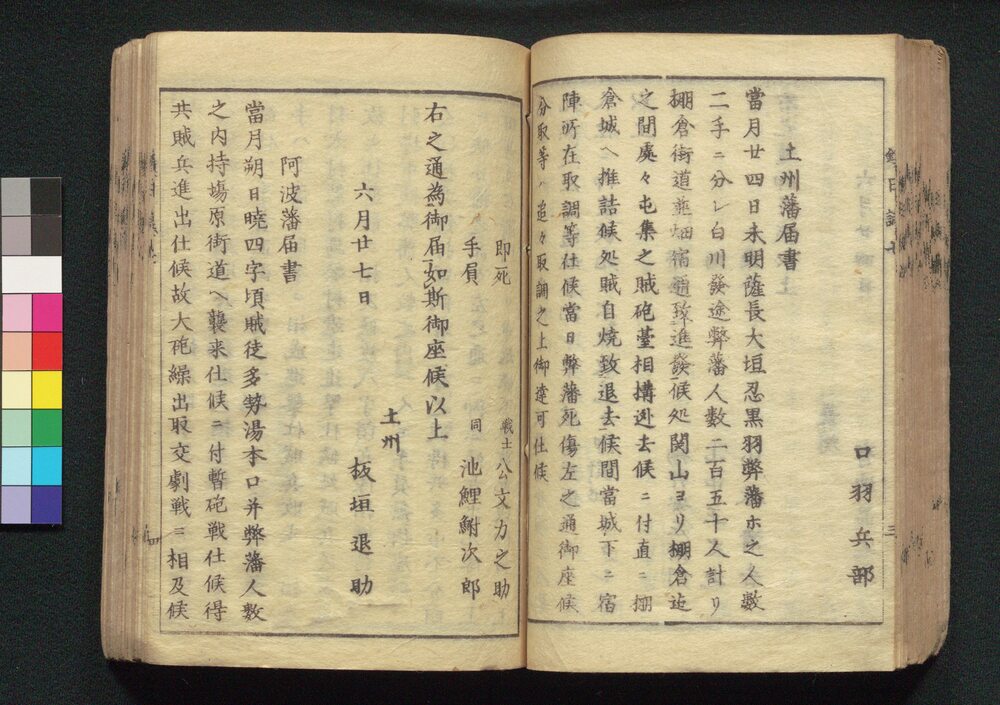 口羽兵部
土州藩届書
當月廿四日未明薩長大垣忍黒羽弊藩ホ之人数
二手ニ分レ白川發途弊藩人数二百五十人計リ
棚倉街道並畑宿道致進發候処関山ヨリ棚倉迄
之間處々屯集之賊砲臺相搆迯去候ニ付直ニ棚
倉城ヘ推詰候処賊自焼致退去候間當城下ニ宿
陣所在取調等仕候當日弊藩死傷左之通御座候
分取等ハ追々取調之上御達可仕候
即死 戦士 公文力之助
手肩 同 池鯉鮒次郎
右之通為御届如斯御座候以上
土州
六月廿七日 板垣退助
阿波藩届書
當月朔日暁四字頃賊徒多勢湯本口并弊藩人数
之内持塲原街道ヘ襲来仕候ニ付暫砲戦仕候得
共賊兵進出仕候故大砲繰出取交劇戦ニ相及候